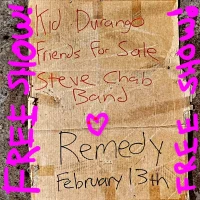 FREE SHOW!
Kid Durango
Friends For Sale
Steve Chab
Band
Remedy
February 13th
FREE SHOW!